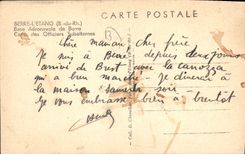 CARTE POSTALE
BERRE-L'ETANG (B.-du-Rh.)
Base Aéronavale de Berre
Carré des Officiers Subalternes
Chère maman, cher frère,
Je suis à Berre depuis deux jours
arrivé de Brest avec la
qui a bien marché - Je dînerai à
la maison samedi soir -
Je vous embrasse bien à bientôt